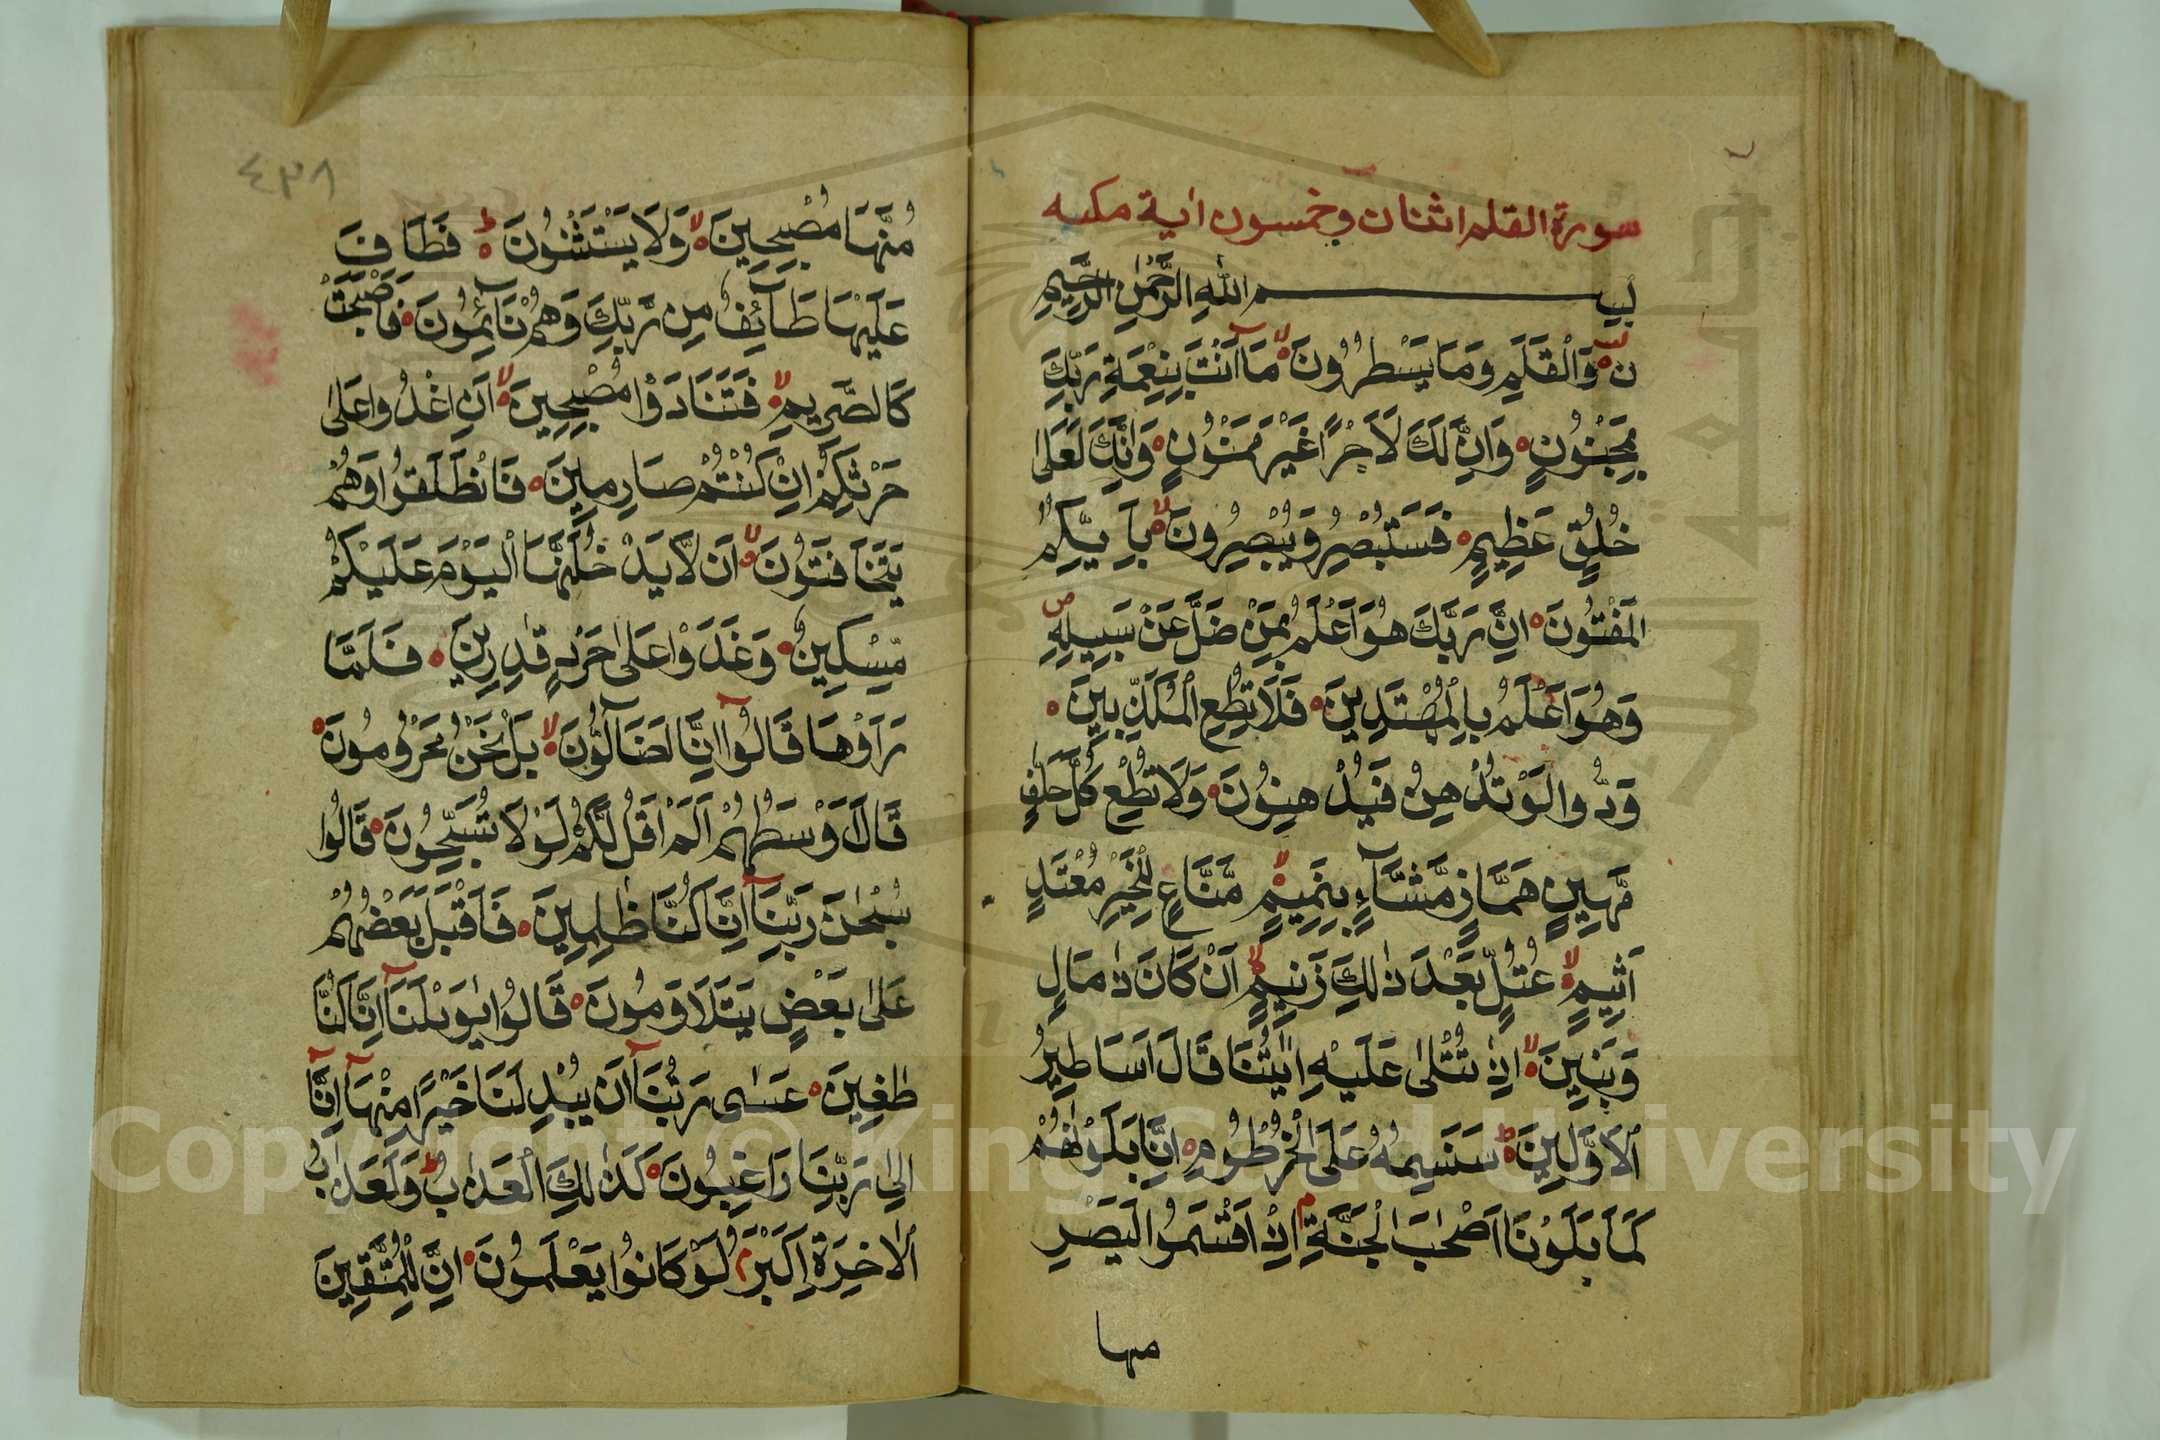 سورة القلم اثنان وخمسون اٰية مكيه
بِسْمِ اللهِ الرَّحْمٰنِ الرَّحِيْمِ
نۤ وَالْقَلَمِ وَمَا يَسْطُرُوْنَ لا مَآ اَنْتَ بِنِعْمَةِ رَبِّكَ
بِمَجْنُوْنٍ وَاِنَّ لَكَ لَاَجْرًا غَيْرَ مَمْنُوْنٍ وَاِنَّكَ لَعَلٰى
خُلُقٍ عَظِيْمٍ فَسَتُبْصِرُ وَيُبْصِرُوْنَ لا بِاَيِّكُمُ
الْمَفْتُوْنُ اِنَّ رَبَّكَ هُوَ اَعْلَمُ بِمَنْ ضَلَّ عَنْ سَبِيْلِهٖ ص
وَهُوَ اَعْلَمُ بِالْمُهْتَدِيْنَ فَلَا تُطِعِ الْمُكَذِّبِيْنَ
وَدُّوْا لَوْ تُدْهِنُ فَيُدْهِنُوْنَ وَلَا تُطِعْ كُلَّ حَلَّافٍ
مَّهِيْنٍ هَمَّازٍ مَّشَّآءٍ بِنَمِيْمٍ لا مَّنَّاعٍ لِّلْخَيْرِ مُعْتَدٍ
اَثِيْمٍ لا عُتُلٍّ بَعْدَ ذٰلِكَ زَنِيْمٍ لا اَنْ كَانَ ذَا مَالٍ
وَّبَنِيْنَ لا اِذَا تُتْلٰى عَلَيْهِ اٰيٰتُنَا قَالَ اَسَاطِيْرُ
الْاَوَّلِيْنَ ط سَنَسِمُهٗ عَلَى الْخُرْطُوْمِ اِنَّا بَلَوْنٰهُمْ
كَمَا بَلَوْنَا اَصْحٰبَ الْجَنَّةِ م اِذْ اَقْسَمُوْا لَيَصْرِ
منها
٤٣٨
مُنَّهَا مُصْبِحِيْنَ لا وَلَا يَسْتَثْنُوْنَ ط فَطَافَ
عَلَيْهَا طَآئِفٌ مِنْ رَّبِّكَ وَهُمْ نَآئِمُوْنَ فَاَصْبَحَتْ
كَالصَّرِيْمِ لا فَتَنَادَوْا مُصْبِحِيْنَ لا اَنِ اغْدُوْا عَلٰى
حَرْثِكُمْ اِنْ كُنْتُمْ صَارِمِيْنَ فَانْطَلَقُوْا وَهُمْ
يَتَخَافَتُوْنَ لا اَنْ لَّا يَدْخُلَنَّهَا الْيَوْمَ عَلَيْكُمْ
مِّسْكِيْنٌ وَغَدَوْا عَلٰى حَرْدٍ قٰدِرِيْنَ فَلَمَّا
رَاَوْهَا قَالُوْٓا اِنَّا لَضَآلُّوْنَ لا بَلْ نَحْنُ مَحْرُوْمُوْنَ
قَالَ اَوْسَطُهُمْ اَلَمْ اَقُلْ لَّكُمْ لَوْلَا تُسَبِّحُوْنَ قَالُوْا
سُبْحٰنَ رَبِّنَآ اِنَّا كُنَّا ظٰلِمِيْنَ فَاَقْبَلَ بَعْضُهُمْ
عَلٰى بَعْضٍ يَتَلَاوَمُوْنَ قَالُوْا يٰوَيْلَنَآ اِنَّا كُنَّا
طٰغِيْنَ عَسٰى رَبُّنَآ اَنْ يُبْدِلَنَا خَيْرًا مِنْهَآ اِنَّآ
اِلٰى رَبِّنَا رَاغِبُوْنَ كَذٰلِكَ الْعَذَابُ ط وَلَعَذَابُ
الْاٰخِرَةِ اَكْبَرُ م لَوْ كَانُوْا يَعْلَمُوْنَ اِنَّ لِلْمُتَّقِيْنَ
Copyright © King Saud University